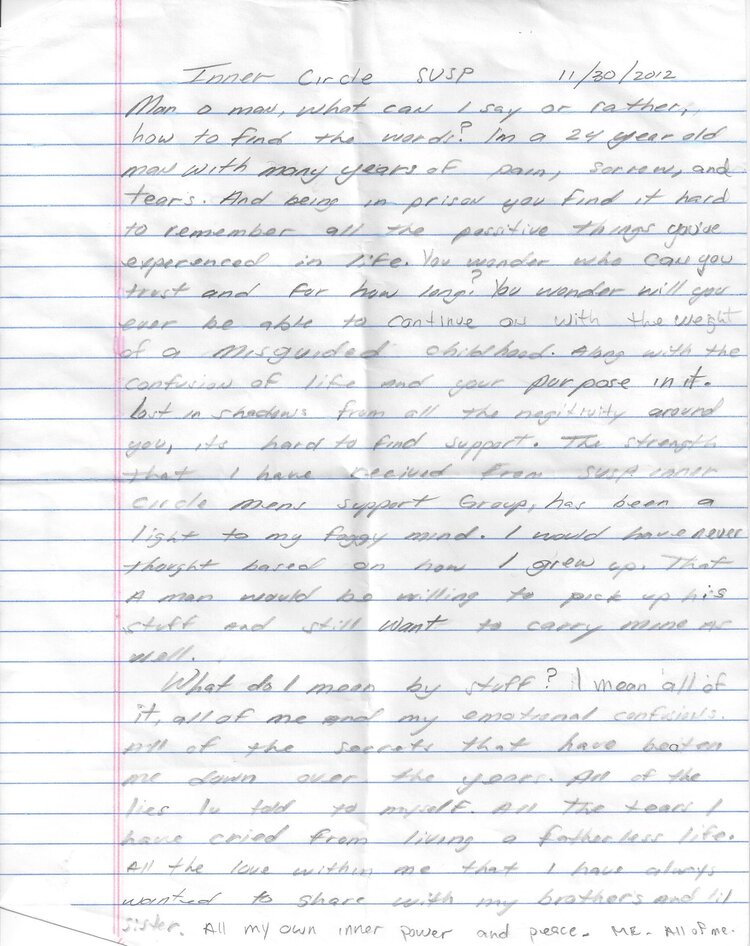 Inner Circle SUSP 11/30/2012
Man o man, what can I say or rather,
how to find the words? I'm a 24 year old
man with many years of pain, sorrow, and
tears. And being in prison you find it hard
to remember all the possitive things you've
experienced in life. You wonder who can you
trust and for how long? You wonder will you
ever be able to continue on with the weight
of a misguided childhood. Along with the
confusion of life and your purpose in it.
Lost in shadows from all the negitivity around
you, its hard to find support. The strength
that I have recived from SUSP inner
circle mens support Group, has been a
light to my foggy mind. I would have never
thought based on how I grew up. That
A man would be willing to pick up his
stuff and still want to carry mine as
well.
What do I mean by stuff? I mean all of
it, all of me and my emotional confusions.
All of the secrets that have beaten
me down over the years. All of the
lies Iv told to myself. All the tears I
have cried from living a fatherless life.
All the love within me that I have always
wanted to share with my brothers and lil
sister. All my own inner power and peace. ME. All of me.